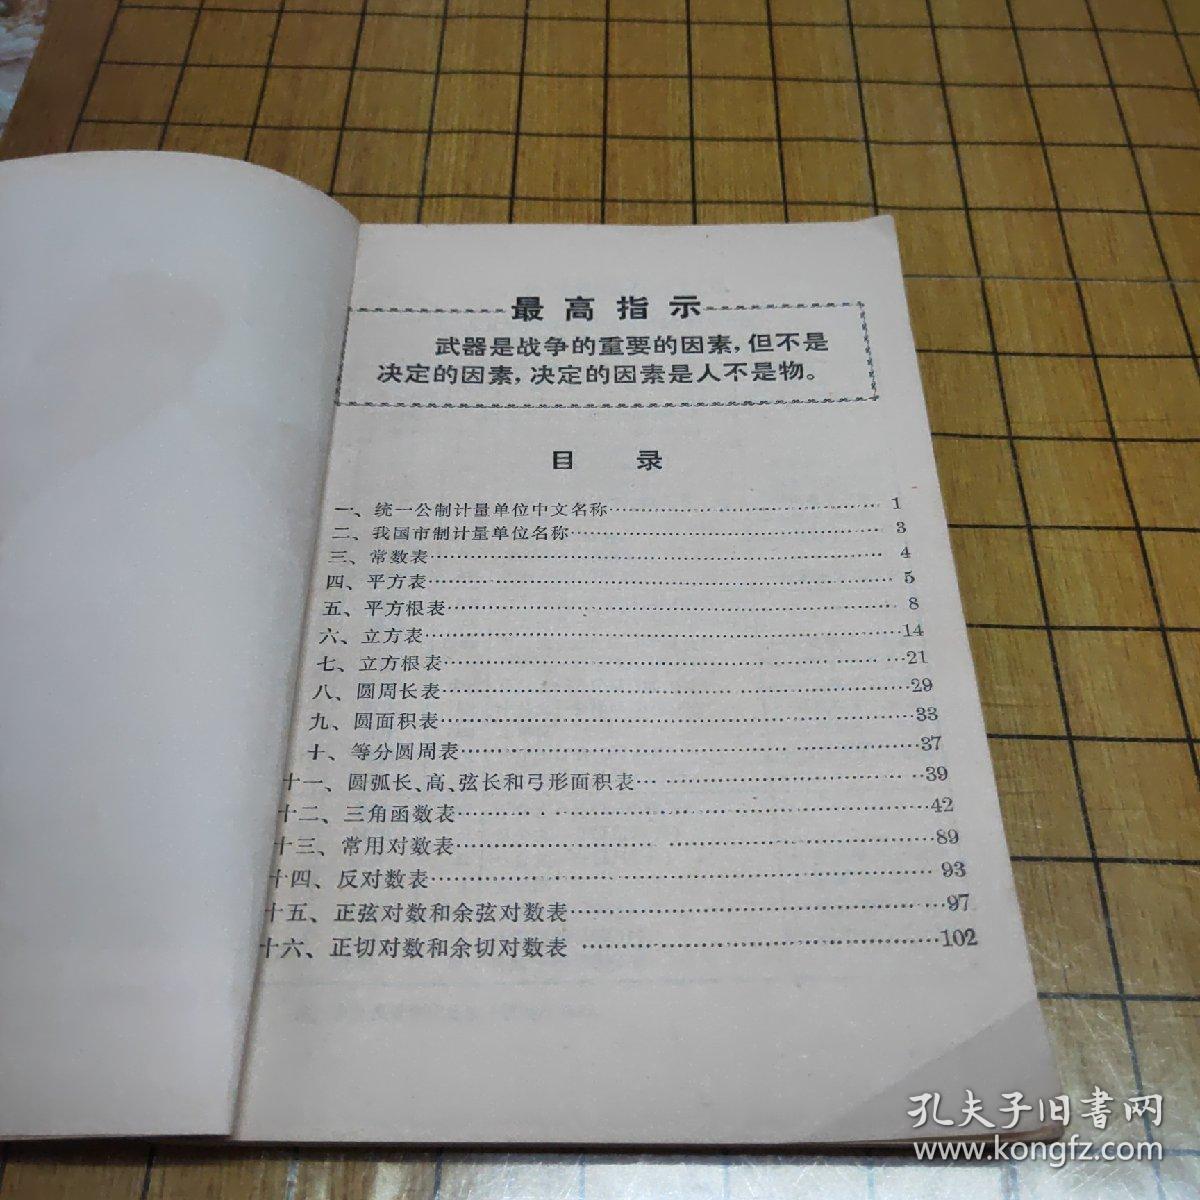 最高指示
武器是战争的重要的因素，但不是
决定的因素，决定的因素是人不是物。
目 录
一、统一公制计量单位中文名称……1
二、我国市制计量单位名称……3
三、常数表……4
四、平方表……5
五、平方根表……8
六、立方表……14
七、立方根表……21
八、圆周长表……29
九、圆面积表……33
十、等分圆周表……37
十一、圆弧长、高、弦长和弓形面积表……39
十二、三角函数表……42
十三、常用对数表……89
十四、反对数表……93
十五、正弦对数和余弦对数表……97
十六、正切对数和余切对数表……102
孔夫子旧書网
www.kongfz.com